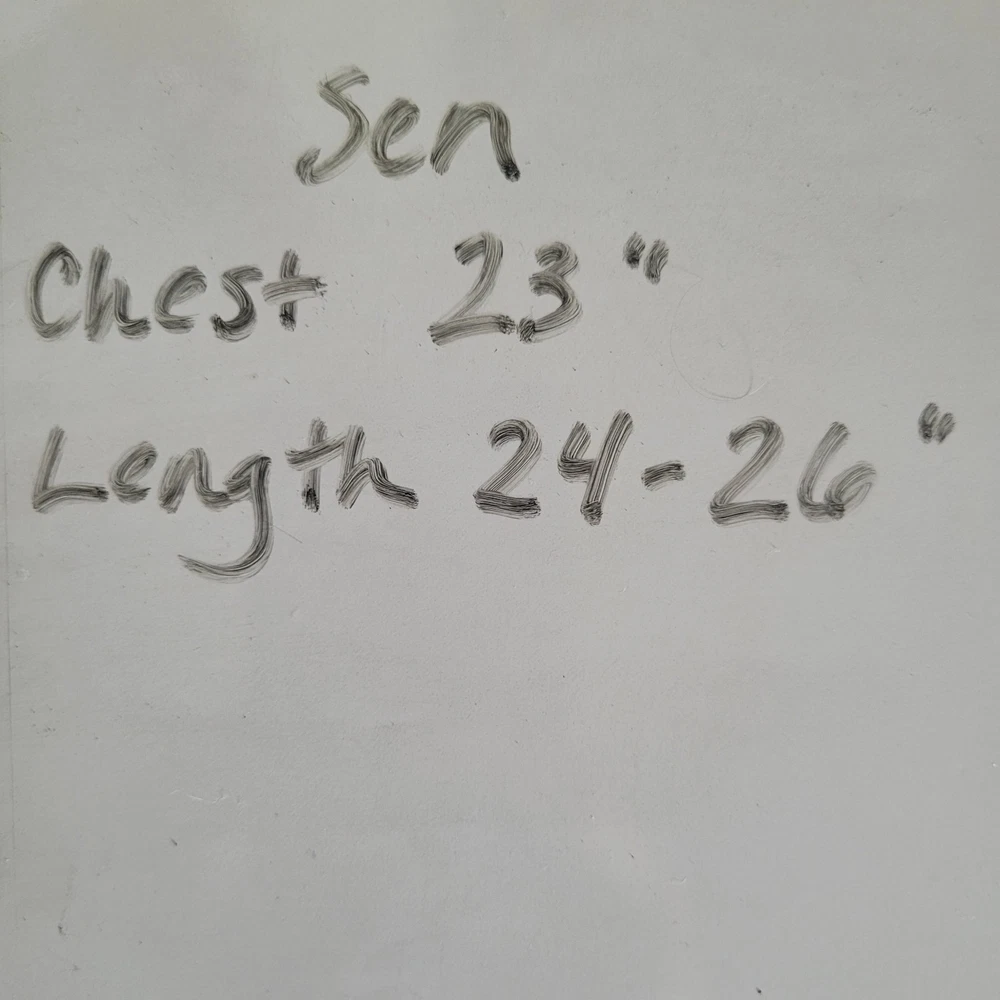 Sen
Chest 23"
Length 24-26"